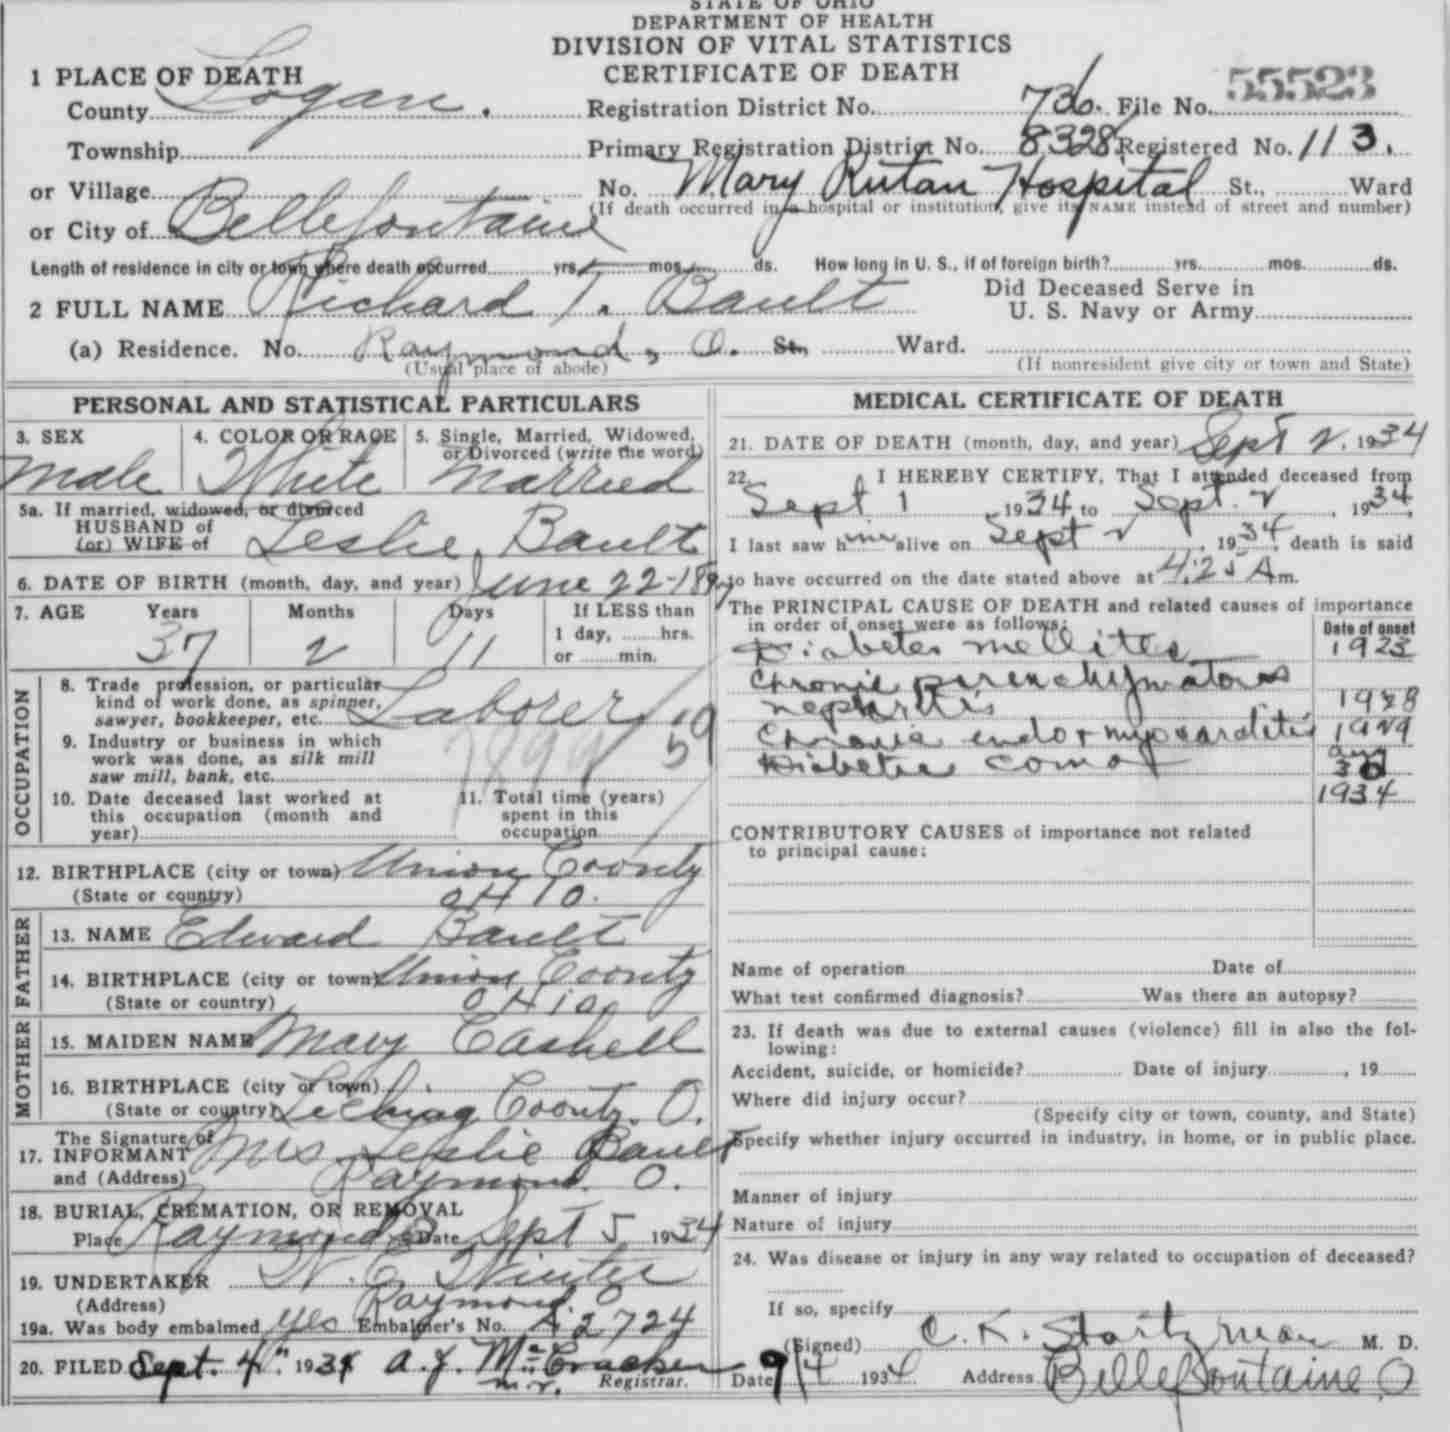 STATE OF OHIO
DEPARTMENT OF HEALTH
DIVISION OF VITAL STATISTICS
CERTIFICATE OF DEATH
1 PLACE OF DEATH
County Logan. Registration District No. 736. File No. 55523
Township Primary Registration District No. 8328 Registered No. 113.
or Village No. Mary Rutan Hospital St., Ward
(If death occurred in a hospital or institution, give its NAME instead of street and number)
or City of Bellefontaine
Length of residence in city or town where death occurred yrs. mos. ds. How long in U. S., if of foreign birth? yrs. mos. ds.
2 FULL NAME Richard T. Bault
Did Deceased Serve in
U. S. Navy or Army
(a) Residence. No. Raymond, O. St., Ward.
(Usual place of abode) (If nonresident give city or town and State)
PERSONAL AND STATISTICAL PARTICULARS
3. SEX 4. COLOR OR RACE 5. Single, Married, Widowed,
or Divorced (write the word)
Male White Married
5a. If married, widowed, or divorced
HUSBAND of
(or) WIFE of Leslie Bault
6. DATE OF BIRTH (month, day, and year) June 22-1897
7. AGE Years Months Days If LESS than
1 day, hrs.
or min.
37 2 11
OCCUPATION
8. Trade profession, or particular
kind of work done, as spinner,
sawyer, bookkeeper, etc. Laborer
9. Industry or business in which
work was done, as silk mill
saw mill, bank, etc.
59
10. Date deceased last worked at
this occupation (month and
year)
11. Total time (years)
spent in this
occupation
12. BIRTHPLACE (city or town) Union Coonty
(State or country) OHIO.
FATHER
13. NAME Edward Bault
14. BIRTHPLACE (city or town) Union Coonty
(State or country) OHio
MOTHER
15. MAIDEN NAME Mary Cashell
16. BIRTHPLACE (city or town)
(State or country) Licking Coonty. O.
17. The Signature of
INFORMANT Mrs Leslie Bault
and (Address) Raymond. O.
18. BURIAL, CREMATION, OR REMOVAL
Place Raymond O Date Sept 5 1934
19. UNDERTAKER W. E. Winter
(Address) Raymond. O
19a. Was body embalmed yes Embalmer's No. A. 2724
20. FILED Sept. 4" 1934 A. J. McCracken
Registrar.
MEDICAL CERTIFICATE OF DEATH
21. DATE OF DEATH (month, day, and year) Sept 2. 1934
22. I HEREBY CERTIFY, That I attended deceased from
Sept 1, 1934, to Sept. 2, 1934,
I last saw him alive on Sept 2, 1934, death is said
to have occurred on the date stated above at 4:25 A m.
The PRINCIPAL CAUSE OF DEATH and related causes of importance
in order of onset were as follows: Date of onset
Diabetes mellites 1923
Chronic parenchymatous
nephritis 1928
Chronic endo + myocarditis 1929
Diabetic coma Aug
30
1934
CONTRIBUTORY CAUSES of importance not related
to principal cause:
Name of operation Date of
What test confirmed diagnosis? Was there an autopsy?
23. If death was due to external causes (violence) fill in also the fol-
lowing:
Accident, suicide, or homicide? Date of injury , 19
Where did injury occur?
(Specify city or town, county, and State)
Specify whether injury occurred in industry, in home, or in public place.
Manner of injury
Nature of injury
24. Was disease or injury in any way related to occupation of deceased?
If so, specify
(Signed) C. K. Startzman M. D.
Date 9/4 1934 Address Bellefontaine, O